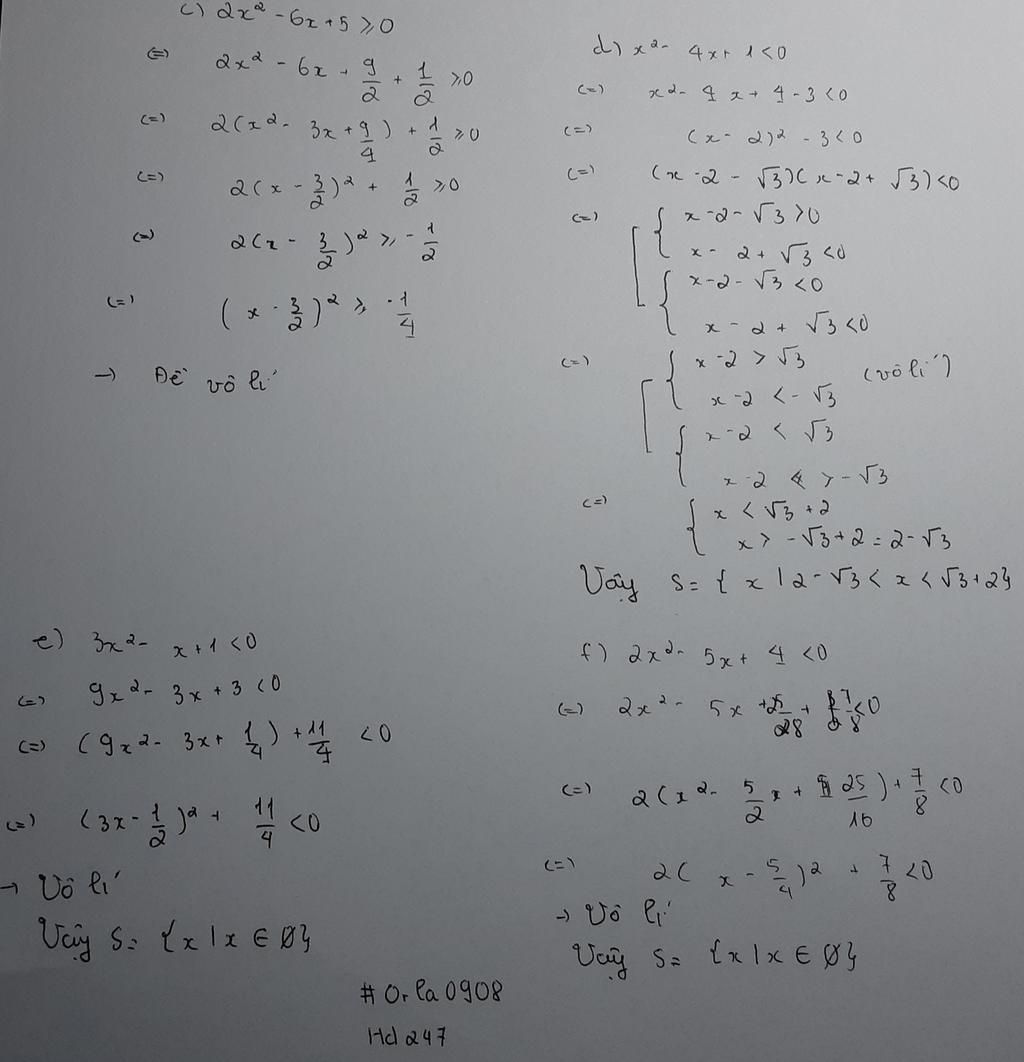 c) 2x² - 6x + 5 ≥ 0
(=) 2x² - 6x + 9/2 + 1/2 ≥ 0
(=) 2(x² - 3x + 9/4) + 1/2 ≥ 0
(=) 2(x - 3/2)² + 1/2 ≥ 0
(=) 2(x - 3/2)² ≥ - 1/2
(=) (x - 3/2)² ≥ - 1/4
→ Đề vô lí
d) x² - 4x + 1 < 0
(=) x² - 4x + 4 - 3 < 0
(=) (x - 2)² - 3 < 0
(=) (x - 2 - √3)(x - 2 + √3) < 0
(=) [ { x - 2 - √3 > 0
x - 2 + √3 < 0
{ x - 2 - √3 < 0
x - 2 + √3 < 0
(=) [ { x - 2 > √3 (vô lí)
x - 2 < - √3
{ x - 2 < √3
x - 2 > - √3
(=) { x < √3 + 2
x > - √3 + 2 = 2 - √3
Vậy S = { x | 2 - √3 < x < √3 + 2}
e) 3x² - x + 1 < 0
(=) 9x² - 3x + 3 < 0
(=) (9x² - 3x + 1/4) + 11/4 < 0
(=) (3x - 1/2)² + 11/4 < 0
→ Vô lí
Vậy S = {x | x ∈ Ø}
f) 2x² - 5x + 4 < 0
(=) 2x² - 5x + 25/28 + 7/8 < 0
(=) 2(x² - 5/2 x + 25/16) + 7/8 < 0
(=) 2(x - 5/4)² + 7/8 < 0
→ Vô lí
Vậy S = {x | x ∈ Ø}
# Or la 0908
Hd 247